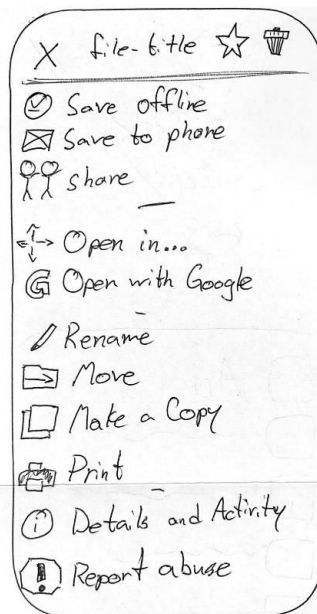 X file-title
Save offline
Save to phone
share
Open in...
G Open with Google
Rename
Move
Make a Copy
Print
i Details and Activity
! Report abuse